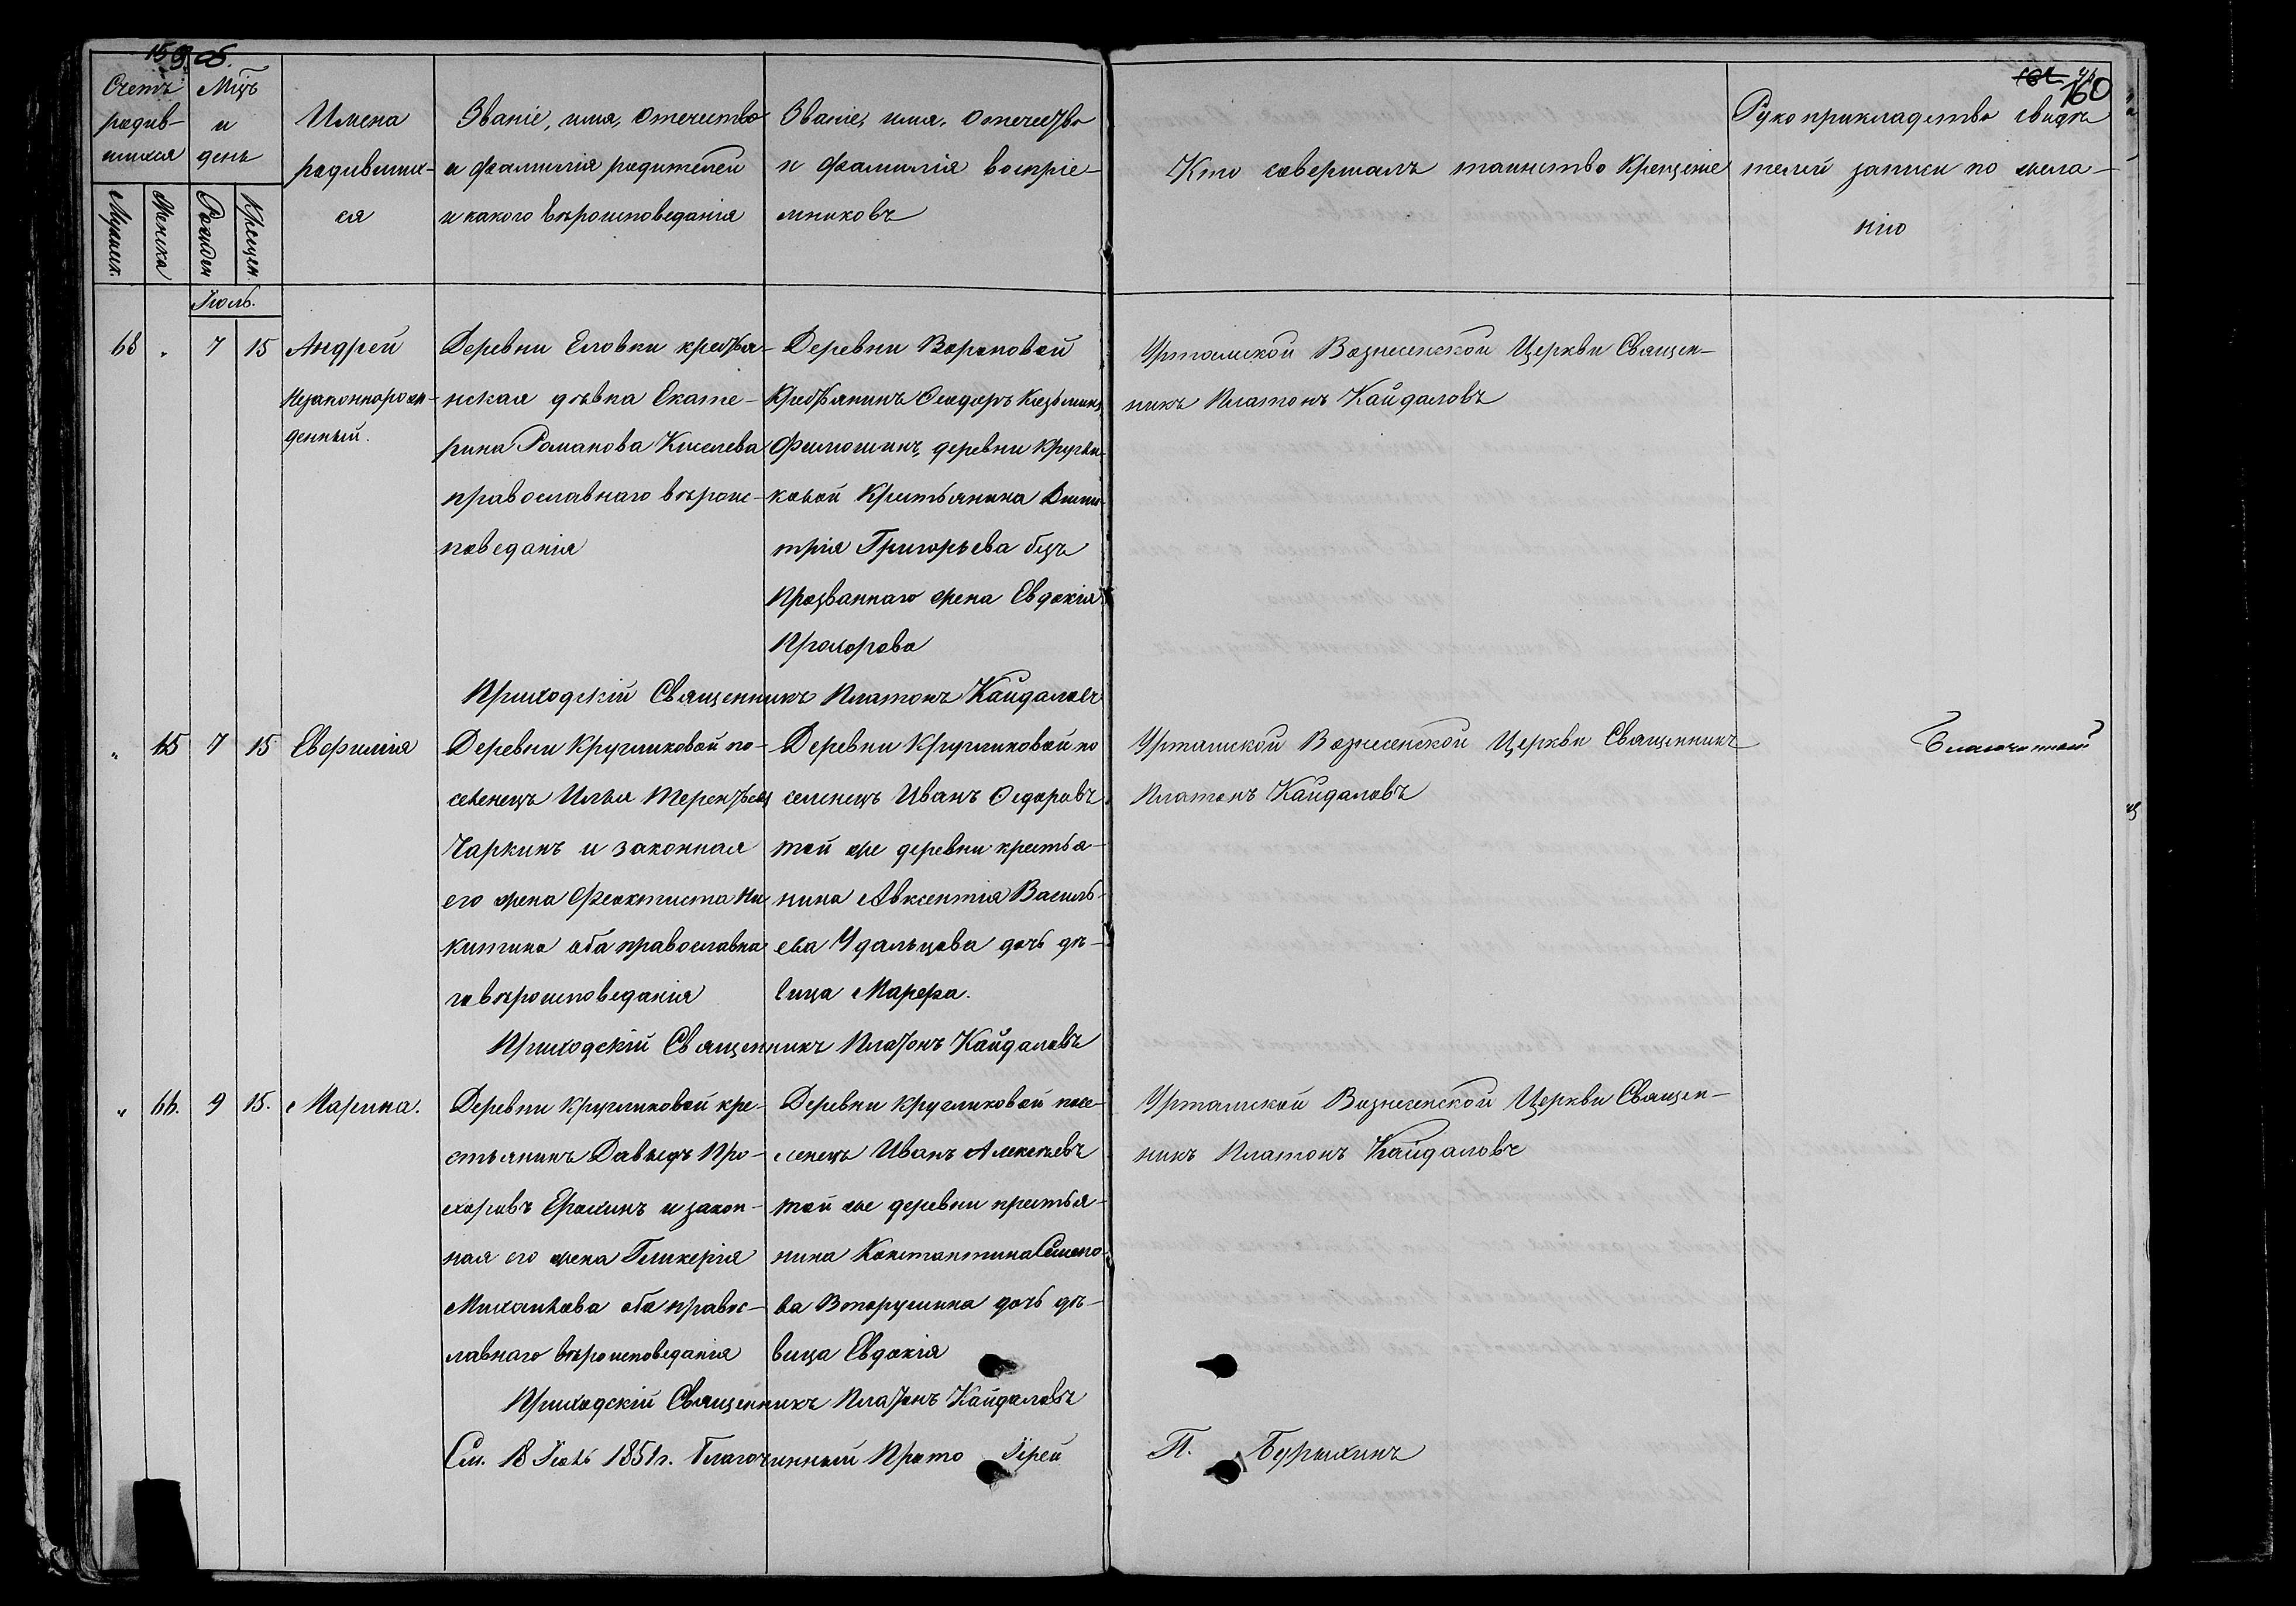 159 об.
160
Счетъ родив-шихся
Мужеск.
Женска
Мцъ и день
Рожден
Крещен.
Имена родивших-ся
Званіе, имя, отечество и фамилія родителей и какого вѣроисповеданія
Званіе, имя, отечество и фамилія воспріе-мниковъ
Кто совершалъ таинство Крещеніе
Рукоприкладство свидѣ-телей записи по жела-нію
Іюль.
68 " 7 15 Андрей
незаконнорож-
денный.
Деревни Еловки крестья-
нская дѣвка Екате-
рина Романова Киселева
православнаго вѣроис-
поведанія
Деревни Вороновой
Крестьянинъ Феодоръ Козьминъ
Филошинъ, деревни Кругли-
ковой Крестьянина Дими-
трія Григорьева безъ
Прозваннаго жена Евдокія
Прохорова
Уртамской Вознесенской Церкви Священ-
никъ Платонъ Кайдаловъ
Приходскій Священникъ Платонъ Кайдаловъ
" 65 7 15 Евфимія
Деревни Кругликовой по-
селенецъ Илья Терентьевъ
Чаркинъ и законная
его жена Феоктиста Ни
китина оба православна
го вѣроисповеданія
Деревни Кругликовой по
селенецъ Иванъ Федоровъ
той же деревни крестья-
нина Авксентія Василь-
ева Удальцова дочь дѣ-
вица Марфа.
Уртамской Вознесенской Церкви Священникъ
Платонъ Кайдаловъ
Приходскій Священникъ Платонъ Кайдаловъ
" 66. 9 15. Марина.
Деревни Кругликовой кре-
стьянинъ Давыдъ Про-
хоровъ Ерохинъ и закон-
ная его жена Гликерія
Михайлова оба правос-
лавнаго вѣроисповеданія
Деревни Кругликовой посе-
ленецъ Иванъ Алексѣевъ
той же деревни крестья-
нина Константина Семено-
ва Вторушина дочь дѣ-
вица Евдокія
Уртамской Вознесенской Церкви Священ-
никъ Платонъ Кайдаловъ
Приходскій Священникъ Платонъ Кайдаловъ
См. 18 Іюль 1851 г. Благочинный Прото Іерей П.